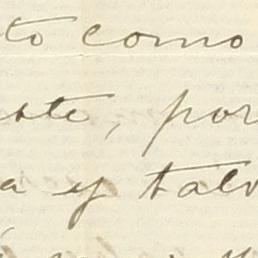 to como
ste, por
a y tal